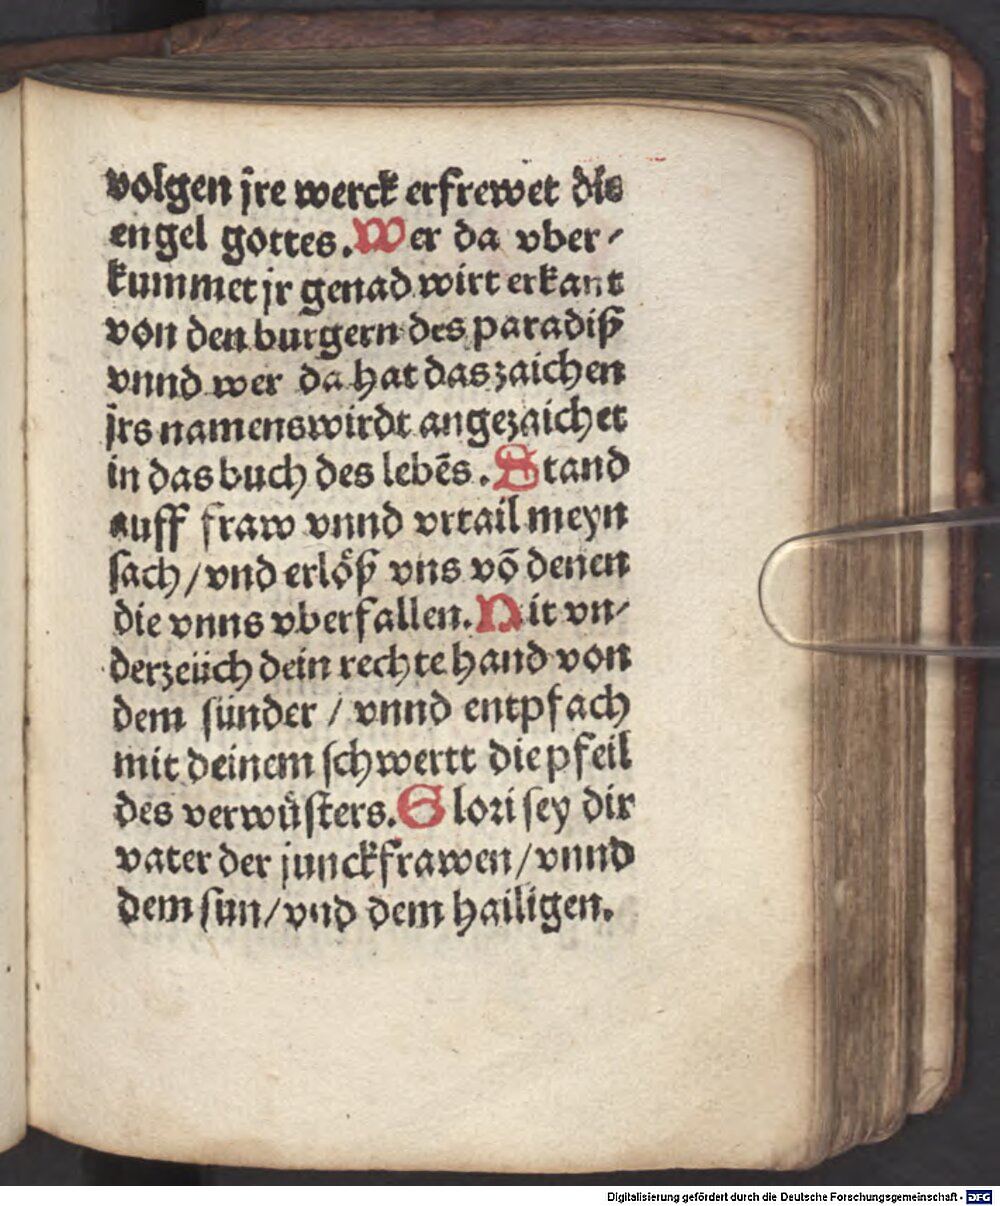 volgen jre werck erfrewet die
engel gottes. Wer da vber⸗
kummet jr genad wirt erkant
von den burgern des paradiß
vnnd wer da hat das zaichen
jrs namens wirdt angezaichet
in das buch des lebēs. Stand
auff fraw vnnd vrtail meyn
sach/ vnd erlöß vns vō denen
die vnns vberfallen. Nit vn⸗
derzeüch dein rechte hand von
dem sünder / vnnd entpfach
mit deinem schwertt die pfeil
des verwüsters. Glori sey dir
vater der junckfrawen/ vnnd
dem sun/ vnd dem hailigen.
Digitalisierung gefördert durch die Deutsche Forschungsgemeinschaft - DFG